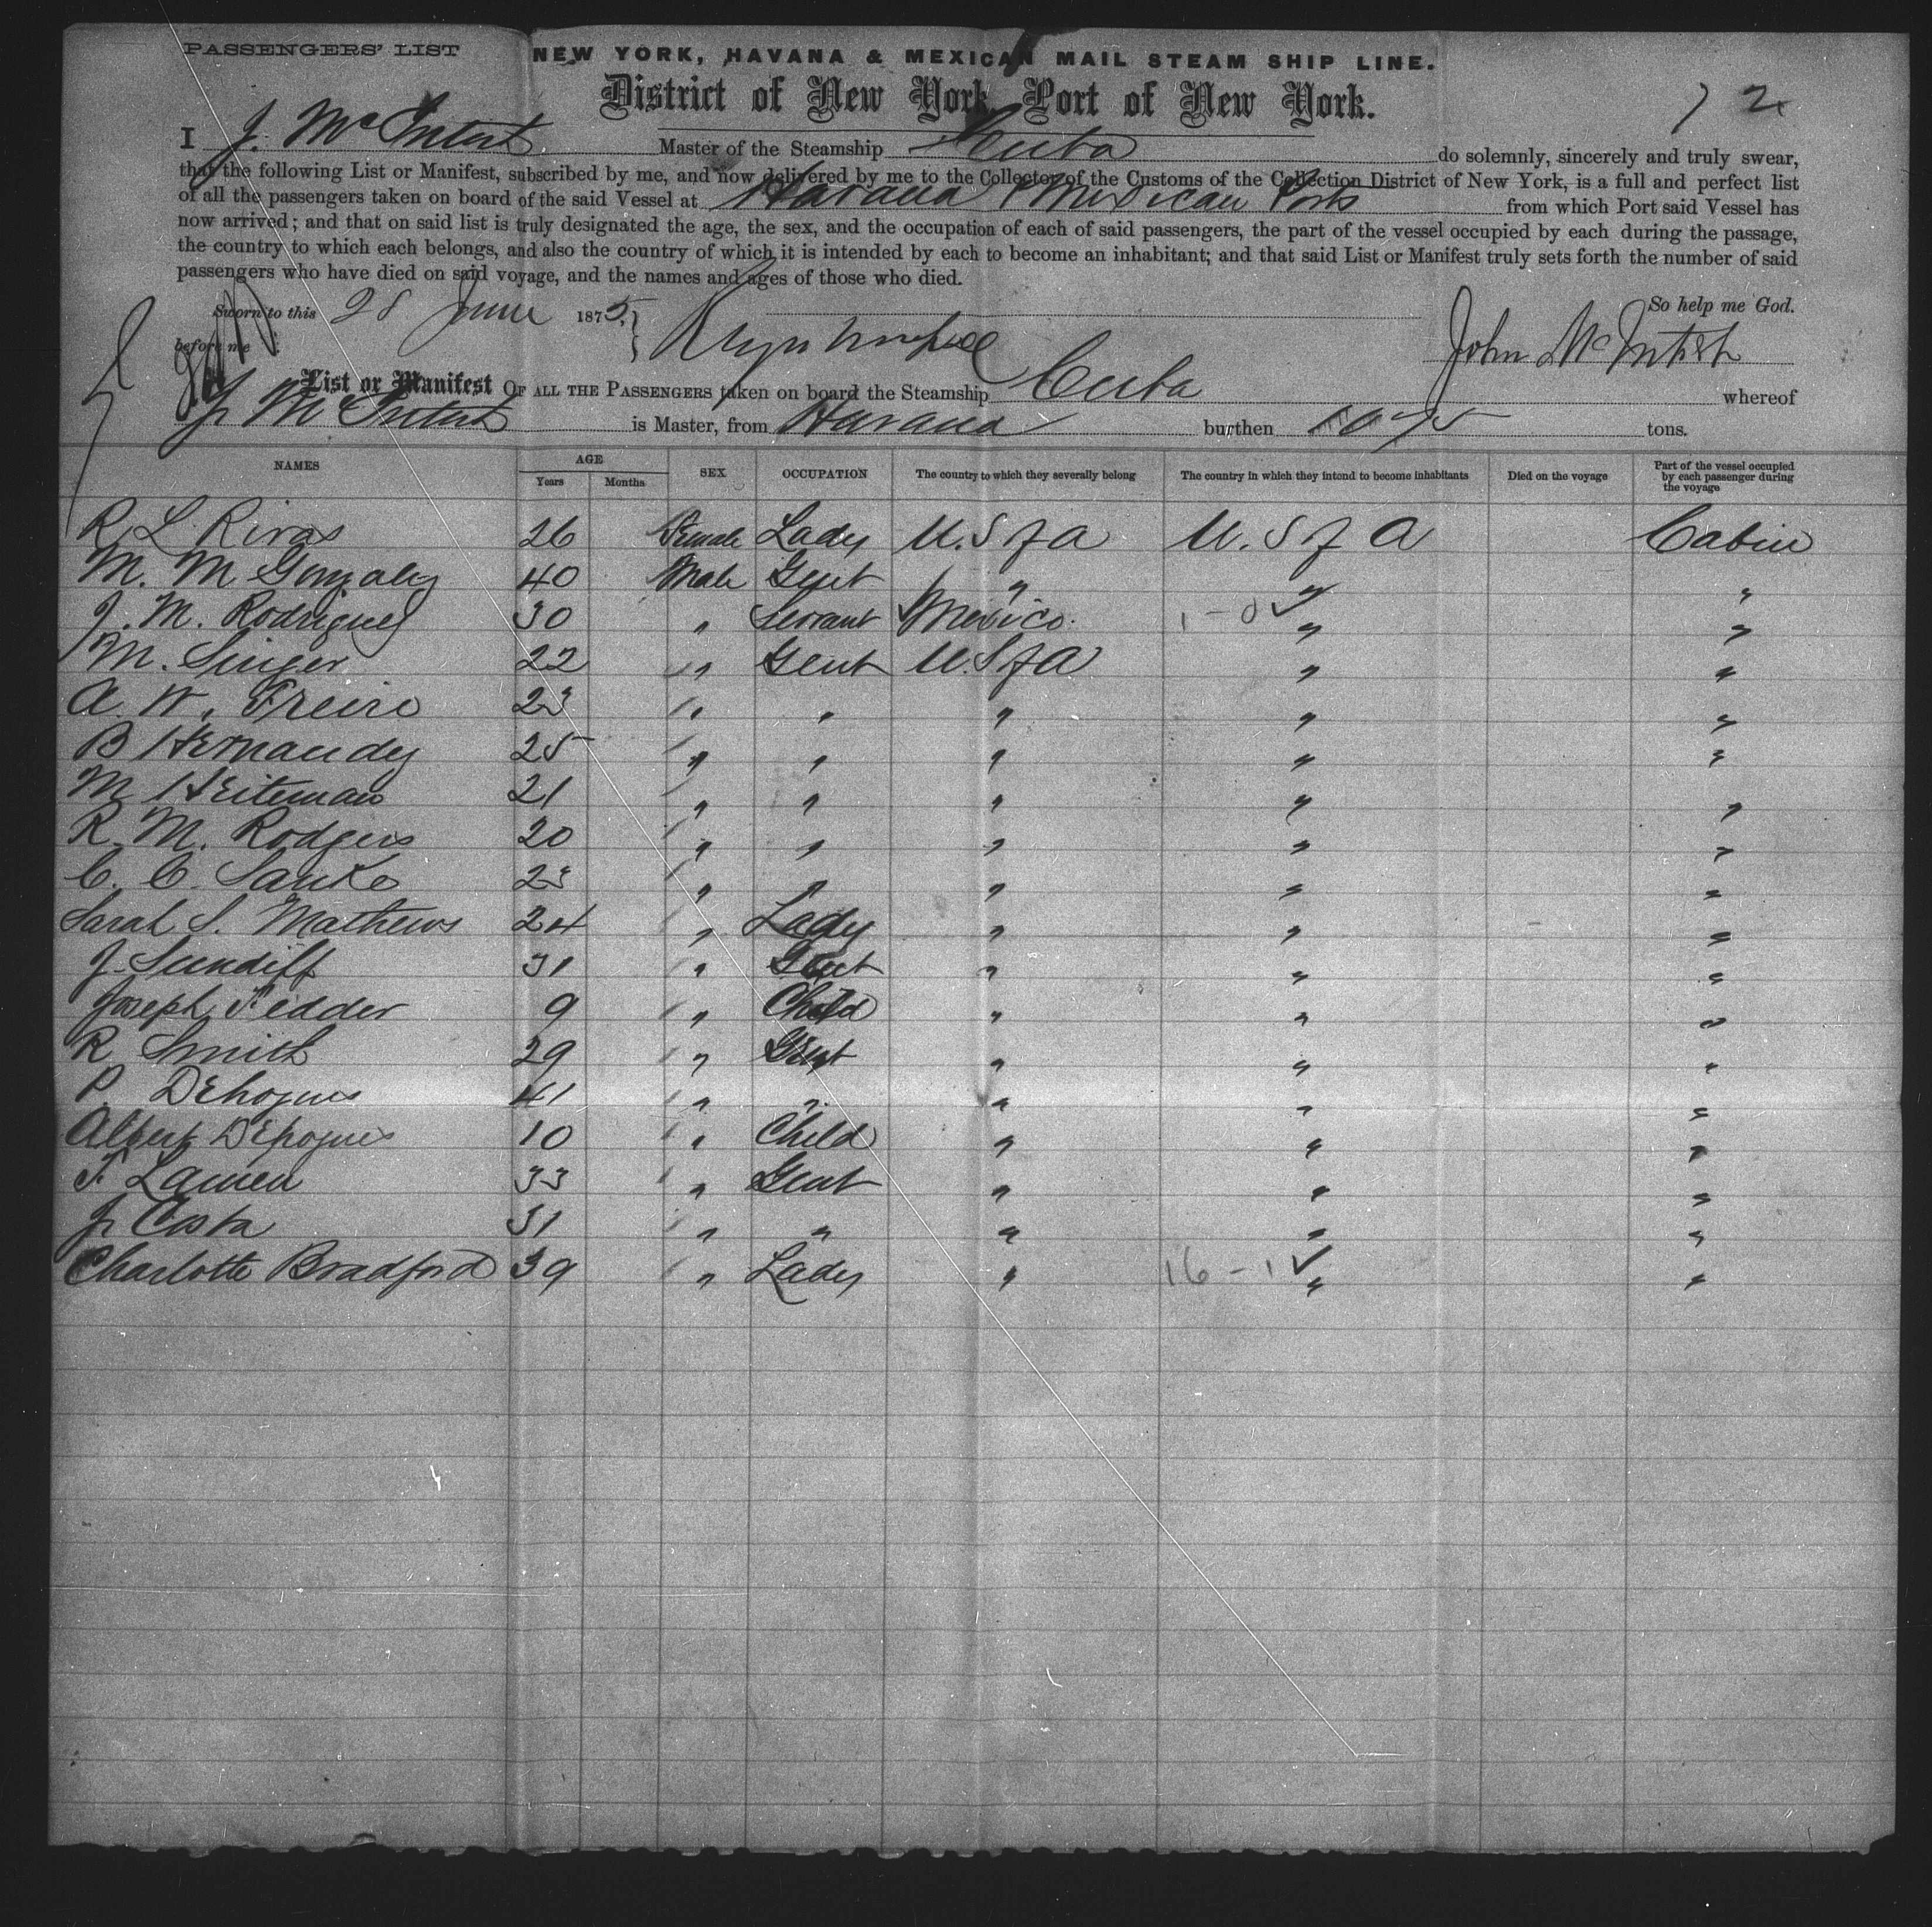 PASSENGERS' LIST
NEW YORK, HAVANA & MEXICAN MAIL STEAM SHIP LINE.
District of New York, Port of New York.
72
I J. McIntosh Master of the Steamship Cuba do solemnly, sincerely and truly swear,
that the following List or Manifest, subscribed by me, and now delivered by me to the Collector of the Customs of the Collection District of New York, is a full and perfect list
of all the passengers taken on board of the said Vessel at Havana & Mexican Ports from which Port said Vessel has
now arrived; and that on said list is truly designated the age, the sex, and the occupation of each of said passengers, the part of the vessel occupied by each during the passage,
the country to which each belongs, and also the country of which it is intended by each to become an inhabitant; and that said List or Manifest truly sets forth the number of said
passengers who have died on said voyage, and the names and ages of those who died.
So help me God.
Sworn to this 28 June 1875,
before me John McIntosh
List or Manifest OF ALL THE PASSENGERS taken on board the Steamship Cuba whereof
J. McIntosh is Master, from Havana burthen 1075 tons.
NAMES AGE Years Months SEX OCCUPATION The country to which they severally belong The country in which they intend to become inhabitants Died on the voyage Part of the vessel occupied by each passenger during the voyage
R. L. Rivas 26 Female Lady U.S of A U.S of A Cabin
M. M Gonzalez 40 Male Gent " " "
J. M. Rodriguez 30 " Servant Mexico. 1-0 ✓ " "
M. Singer 22 " Gent U.S of A " "
A. W. Freire 23 " " " " "
B Hernandez 25 " " " " "
M Heiteman 21 " " " " "
R. M. Rodgers 20 " " " " "
C. C. Sanks 23 " " " " "
Sarah S. Mathews 24 " Lady " " "
J. Sundiff 31 " Gent " " "
Joseph Fedder 9 " Child " " "
R Smith 29 " Gent " " "
P. Dehogues 41 " " " " "
Albert Dehogues 10 " Child " " "
F. Lamen 33 " Gent " " "
J. Costa 31 " " " " "
Charlotte Bradford 39 " Lady " 16-1 ✓ " "